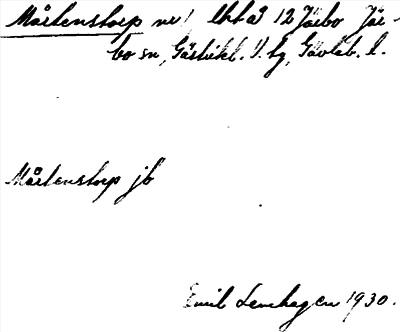 Mårtenstorp nr 1 lht å 12 Järbo Jär-
bo sn, Gästrikl. V. tg, Gävleb. l.
Mårtenstorp jb
Emil Lenhagen 1930.